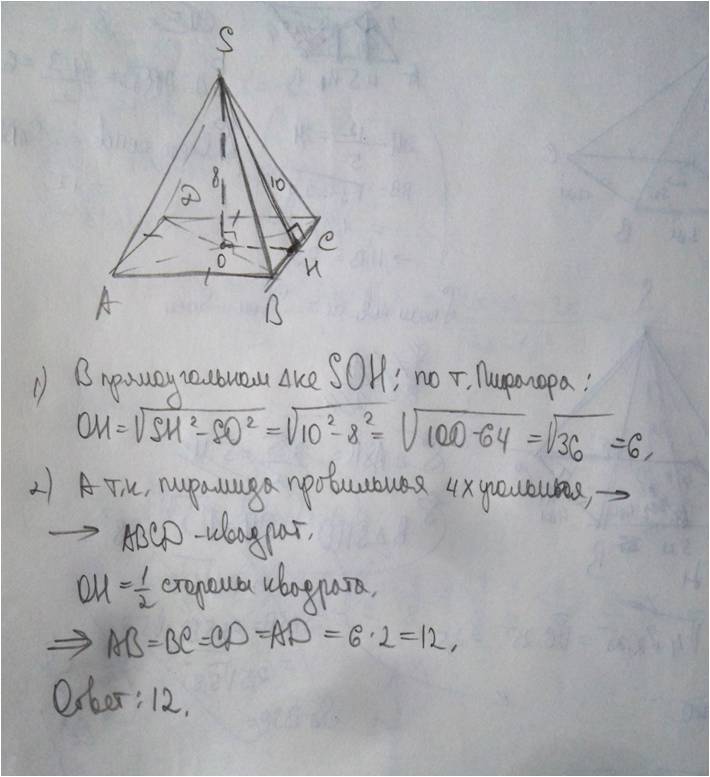 S
8
10
D
C
O
H
A
B
1) В прямоугольном Δке SOH: по т. Пифагора:
OH = √SH² - SO² = √10² - 8² = √100 - 64 = √36 = 6.
2) А т.к. пирамида провильная 4х угольная, →
→ ABCD - квадрат.
OH = 1/2 стороны квадрата.
⇒ AB = BC = CD = AD = 6 · 2 = 12.
Ответ: 12.